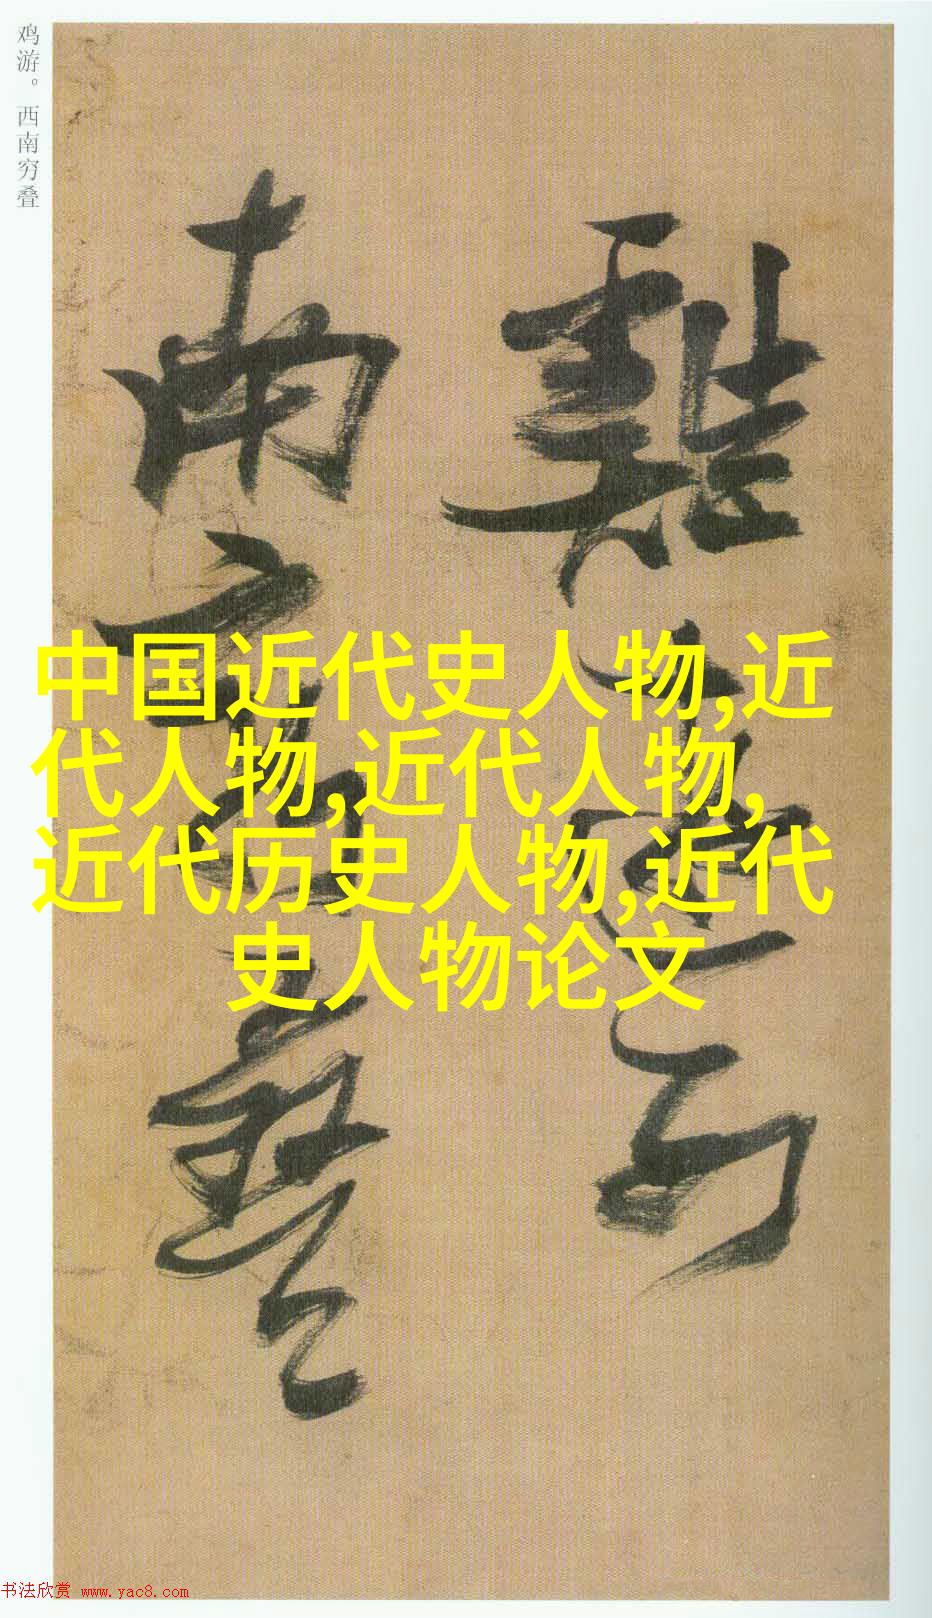 鸡游。西南穷叠
雞遊西
南窮疊
中国近代史人物,近
代人物,近代人物,
近代历史人物,近代
史人物论文
书法欣赏 www.yac8.com